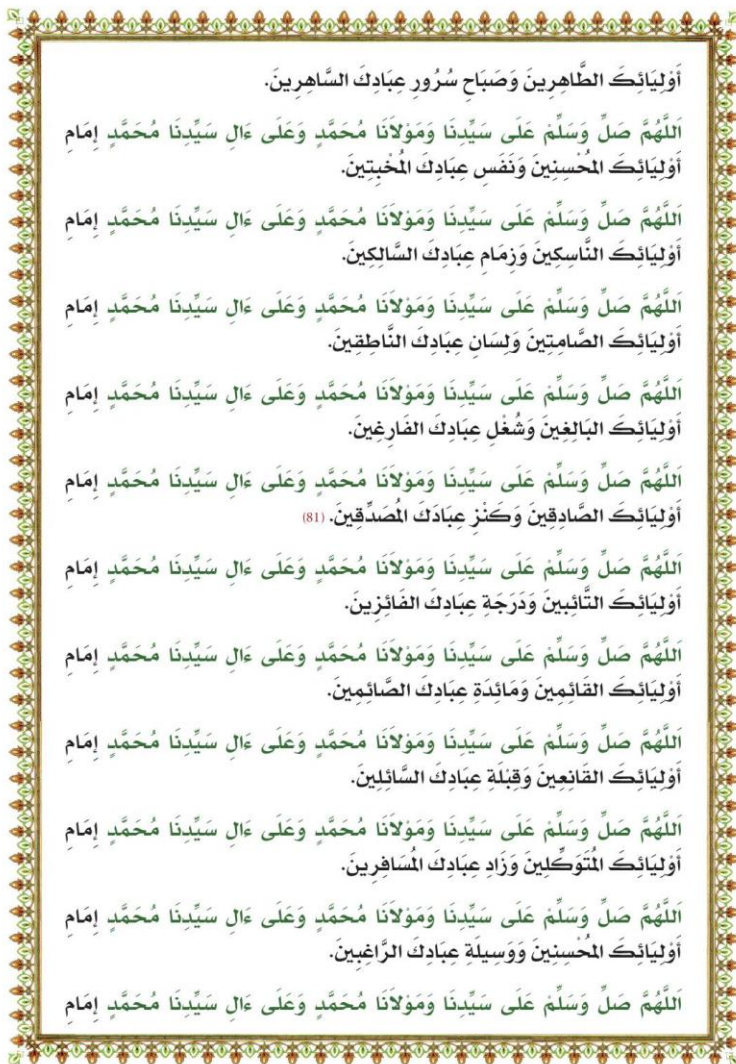 أَوْلِيَائِكَ الطَّاهِرِينَ وَصَبَاحِ سُرُورِ عِبَادِكَ السَّاهِرِينَ.
اَللَّهُمَّ صَلِّ وَسَلِّمْ عَلَى سَيِّدِنَا وَمَوْلاَنَا مُحَمَّدٍ وَعَلَى ءَالِ سَيِّدِنَا مُحَمَّدٍ إِمَامِ
أَوْلِيَائِكَ المُحْسِنِينَ وَنَفَسِ عِبَادِكَ المُخْبِتِينَ.
اَللَّهُمَّ صَلِّ وَسَلِّمْ عَلَى سَيِّدِنَا وَمَوْلاَنَا مُحَمَّدٍ وَعَلَى ءَالِ سَيِّدِنَا مُحَمَّدٍ إِمَامِ
أَوْلِيَائِكَ النَّاسِكِينَ وَزِمَامِ عِبَادِكَ السَّالِكِينَ.
اَللَّهُمَّ صَلِّ وَسَلِّمْ عَلَى سَيِّدِنَا وَمَوْلاَنَا مُحَمَّدٍ وَعَلَى ءَالِ سَيِّدِنَا مُحَمَّدٍ إِمَامِ
أَوْلِيَائِكَ الصَّامِتِينَ وَلِسَانِ عِبَادِكَ النَّاطِقِينَ.
اَللَّهُمَّ صَلِّ وَسَلِّمْ عَلَى سَيِّدِنَا وَمَوْلاَنَا مُحَمَّدٍ وَعَلَى ءَالِ سَيِّدِنَا مُحَمَّدٍ إِمَامِ
أَوْلِيَائِكَ البَالِغِينَ وَشُغْلِ عِبَادِكَ الفَارِغِينَ.
اَللَّهُمَّ صَلِّ وَسَلِّمْ عَلَى سَيِّدِنَا وَمَوْلاَنَا مُحَمَّدٍ وَعَلَى ءَالِ سَيِّدِنَا مُحَمَّدٍ إِمَامِ
أَوْلِيَائِكَ الصَّادِقِينَ وَكَنْزِ عِبَادَكَ المُصَدِّقِينَ. (81)
اَللَّهُمَّ صَلِّ وَسَلِّمْ عَلَى سَيِّدِنَا وَمَوْلاَنَا مُحَمَّدٍ وَعَلَى ءَالِ سَيِّدِنَا مُحَمَّدٍ إِمَامِ
أَوْلِيَائِكَ التَّائِبِينَ وَدَرَجَةِ عِبَادِكَ الفَائِزِينَ.
اَللَّهُمَّ صَلِّ وَسَلِّمْ عَلَى سَيِّدِنَا وَمَوْلاَنَا مُحَمَّدٍ وَعَلَى ءَالِ سَيِّدِنَا مُحَمَّدٍ إِمَامِ
أَوْلِيَائِكَ القَائِمِينَ وَمَائِدَةِ عِبَادِكَ الصَّائِمِينَ.
اَللَّهُمَّ صَلِّ وَسَلِّمْ عَلَى سَيِّدِنَا وَمَوْلاَنَا مُحَمَّدٍ وَعَلَى ءَالِ سَيِّدِنَا مُحَمَّدٍ إِمَامِ
أَوْلِيَائِكَ القَانِعِينَ وَقِبْلَةِ عِبَادِكَ السَّائِلِينَ.
اَللَّهُمَّ صَلِّ وَسَلِّمْ عَلَى سَيِّدِنَا وَمَوْلاَنَا مُحَمَّدٍ وَعَلَى ءَالِ سَيِّدِنَا مُحَمَّدٍ إِمَامِ
أَوْلِيَائِكَ المُتَوَكِّلِينَ وَزَادِ عِبَادِكَ المُسَافِرِينَ.
اَللَّهُمَّ صَلِّ وَسَلِّمْ عَلَى سَيِّدِنَا وَمَوْلاَنَا مُحَمَّدٍ وَعَلَى ءَالِ سَيِّدِنَا مُحَمَّدٍ إِمَامِ
أَوْلِيَائِكَ المُحْسِنِينَ وَوَسِيلَةِ عِبَادِكَ الرَّاغِبِينَ.
اَللَّهُمَّ صَلِّ وَسَلِّمْ عَلَى سَيِّدِنَا وَمَوْلاَنَا مُحَمَّدٍ وَعَلَى ءَالِ سَيِّدِنَا مُحَمَّدٍ إِمَامِ